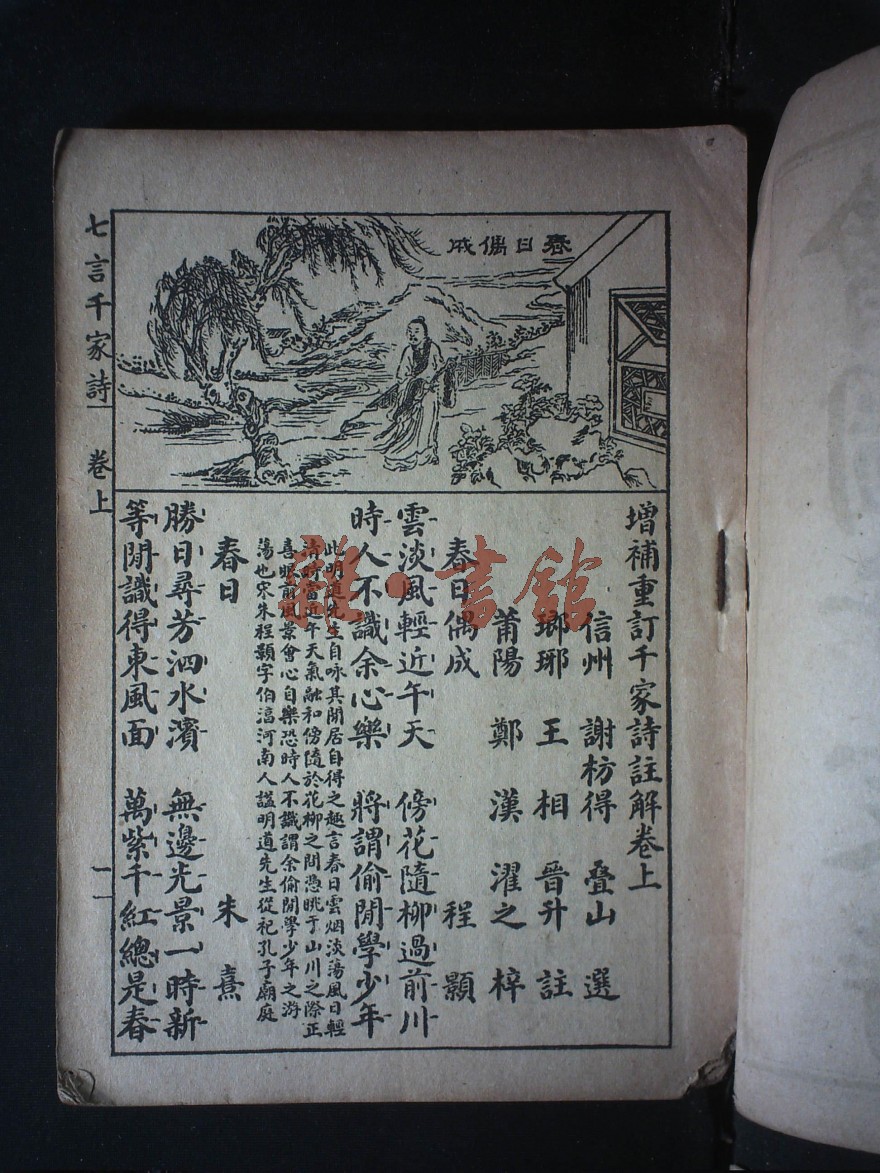 春日偶成
增補重訂千家詩註解卷上
信州 謝枋得 疊山 選
瑯琊 王相 晉升 註
莆陽 鄭漢 濯之 梓
春日偶成 程顥
雲淡風輕近午天 傍花隨柳過前川
時人不識余心樂 將謂偷閒學少年
此明道先生自咏其閒居自得之趣言春日雲烟淡蕩風日輕
清時當近午天氣融和傍隨於花柳之間憑眺于山川之際正
喜眼前風景會心自樂恐時人不識謂余偷閒學少年之游
蕩也宋朱程顥字伯淳河南人謚明道先生從祀孔子廟庭
春日 朱熹
勝日尋芳泗水濱 無邊光景一時新
等閒識得東風面 萬紫千紅總是春
七言千家詩 卷上 一
雜·書館